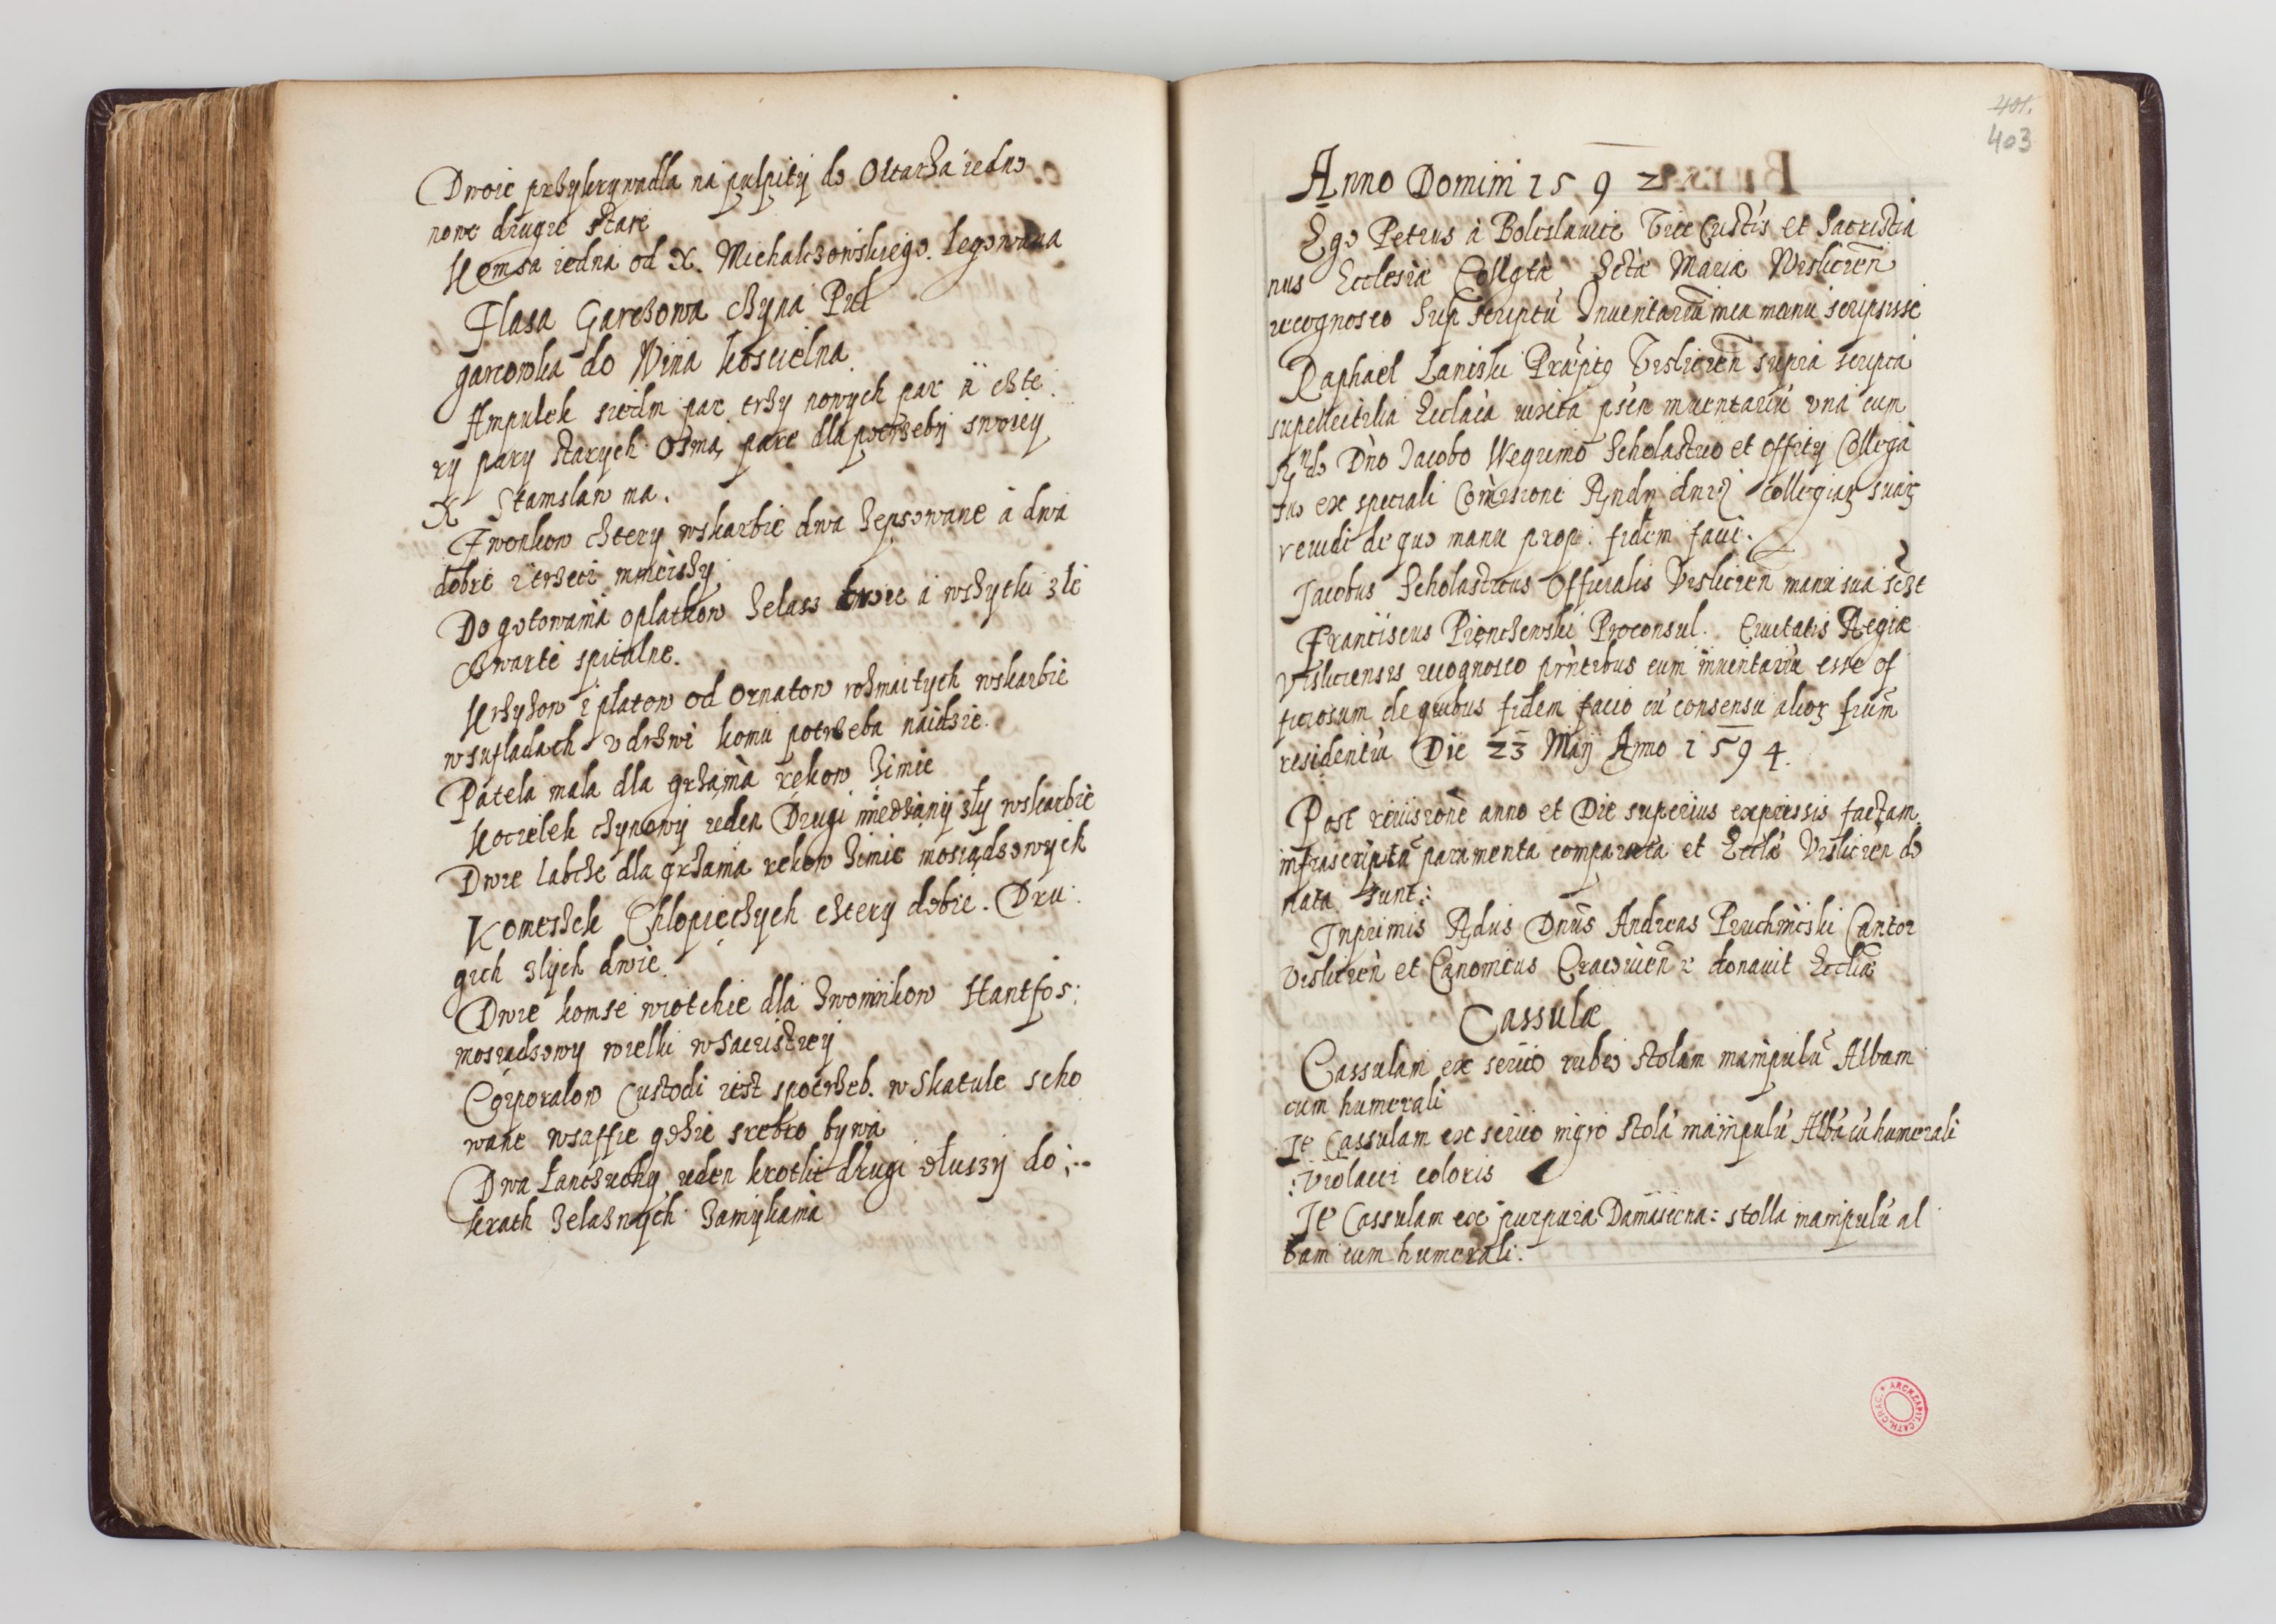 Dwoie przykrywadla na pulpity do Oltarza iedno
nowe drugie stare
Komsa iedna od X. Michalczowskiego. legowana
Flasa Garczowa czyna Pul
garcowka do Wina koscielna.
Ampulek siedm par trzy nowych par a czte
ry pary starych Osmą pare dla potrzeby swoiey
X Stanislaw ma.
Dzwonkow cztery wskarbie dwa zepsowane a dwa
dobre i trzeci mnieiszy
Do gotowania oplatkow zelaza dwoie a wszytki złe
czwarte spitalne.
Krzyzow i platow od Ornatow rozmaitych wskarbie
wsufladach v drzwi komu potrzeba naidzie.
Patela mala dla grzania rękow zimie
Kocielek czynowy ieden Drugi miedziany zły wskarbie
Dwie labcze dla grzania rekow zimie mosiądzowych
Komeszek Chlopięczych cztery dobre. Dru:
gich zlych dwie.
Dwie komse wiotchie dla Zwonnikow Hantfos:
mosiądzowy wielki w Sacristiey
Corporalow Custodi iest spotrzeb. w Skatule scho
wane wsaffie gdzie srebro bywa
Dwa łanczuchy ieden krotki drugi dłuszy do
krath zelaznych zamykania
401.
403
Anno Domini 1592
Ego Petrus à Boleslawice Vice Custos et Sacristia
nus Ecclesiæ Collgtæ Sctæ Mariæ Wislicien
recognosco Sup scriptu Inuentariū mea manu scripsisse
Raphael Laniski Præpitg Vislicien supra scripta
supellectilia Ecclaca iuxta psen inuentariū vna cum
Rndo Dno Jacobo Wegrinio Scholastico et Officy Collega
tuo ex speciali Comissione Rndr dnr Collegiar suar
reuidi de quo manu prop: fidem faci.
Jacobus Scholasticus Officialis Vislicien manu sua scze
Franciscus Pienczewski Proconsul. Ciuitatis Regiæ
Visliciensis recognosco prntibus eum inuentariū esse of
ficiosum de quibus fidem facio cū consensu alior frūm
residentiū Die 23 Maij Anno 1594.
Post reuisionē anno et Die superius expressis factam
infrascripta paramenta comparata et Ecclæ Vislicien do
nata sunt:
Inprimis Rdus Dnus Andreas Pruchnicki Cantor
Vislicien et Canonicus Cracouien donauit Eccliæ
Cassulæ
Cassulam ex serico rubeo stolam manipulū Albam
cum humerali
It Cassulam ex serico nigro stolā manipulū Albā cū humerali
: Violacei coloris
It Cassulam ex purpura Damascena: stolla manipulū al
bam cum humerali.
ARCH. CAPIT. CATH. CRAC.